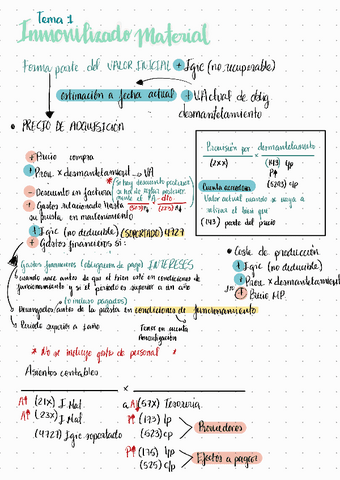 Tema 1
Inmovilizado Material
Forma parte del VALOR INICIAL + Igic (no recuperable)
estimación a fecha actual + VA actual de oblig
desmantelamiento
• PRECIO DE ADQUISICIÓN
+ Precio compra
+ Prov. x desmantelamient → VA
- Descuento en factura
+ Gastos relacionado hasta
su puesta en
+ Igic (no deducible) (SOPORTADO) 4727
+ Gastos financieros si:
* Si hay descuento posterior
dto
Provisión por desmantelamiento
(2XX) x (143) lp
P↑
(5293) cp
Cuenta acreedora
Valor actual cuando se vaya a
retirar el bien que
(143) parte del precio
• Coste de producción
+ Igic (no deducible)
+ Prov x desmantelamiento
+ Precio MP.
Gastos financieros (obligaciones de pago) INTERESES
cuando nace antes de que el bien esté en condiciones de
funcionamiento y si el periodo es superior a un año
(o incluso pagados)
○ Devengados antes de la puesta en condiciones de funcionamiento
○ Periodo superior a 1 año
Tener en cuenta
Amortización
* No se incluye gasto de personal *
Asientos contables
x
A↑ (21X) I. Mat
A↑ (23X) I. Mat
(4727) Igic soportado
a A↓ (57X) Tesorería
P↑ (173) lp
(523) cp
Proveedores
P↑ (175) lp
(525) c/p
Efectos a pagar